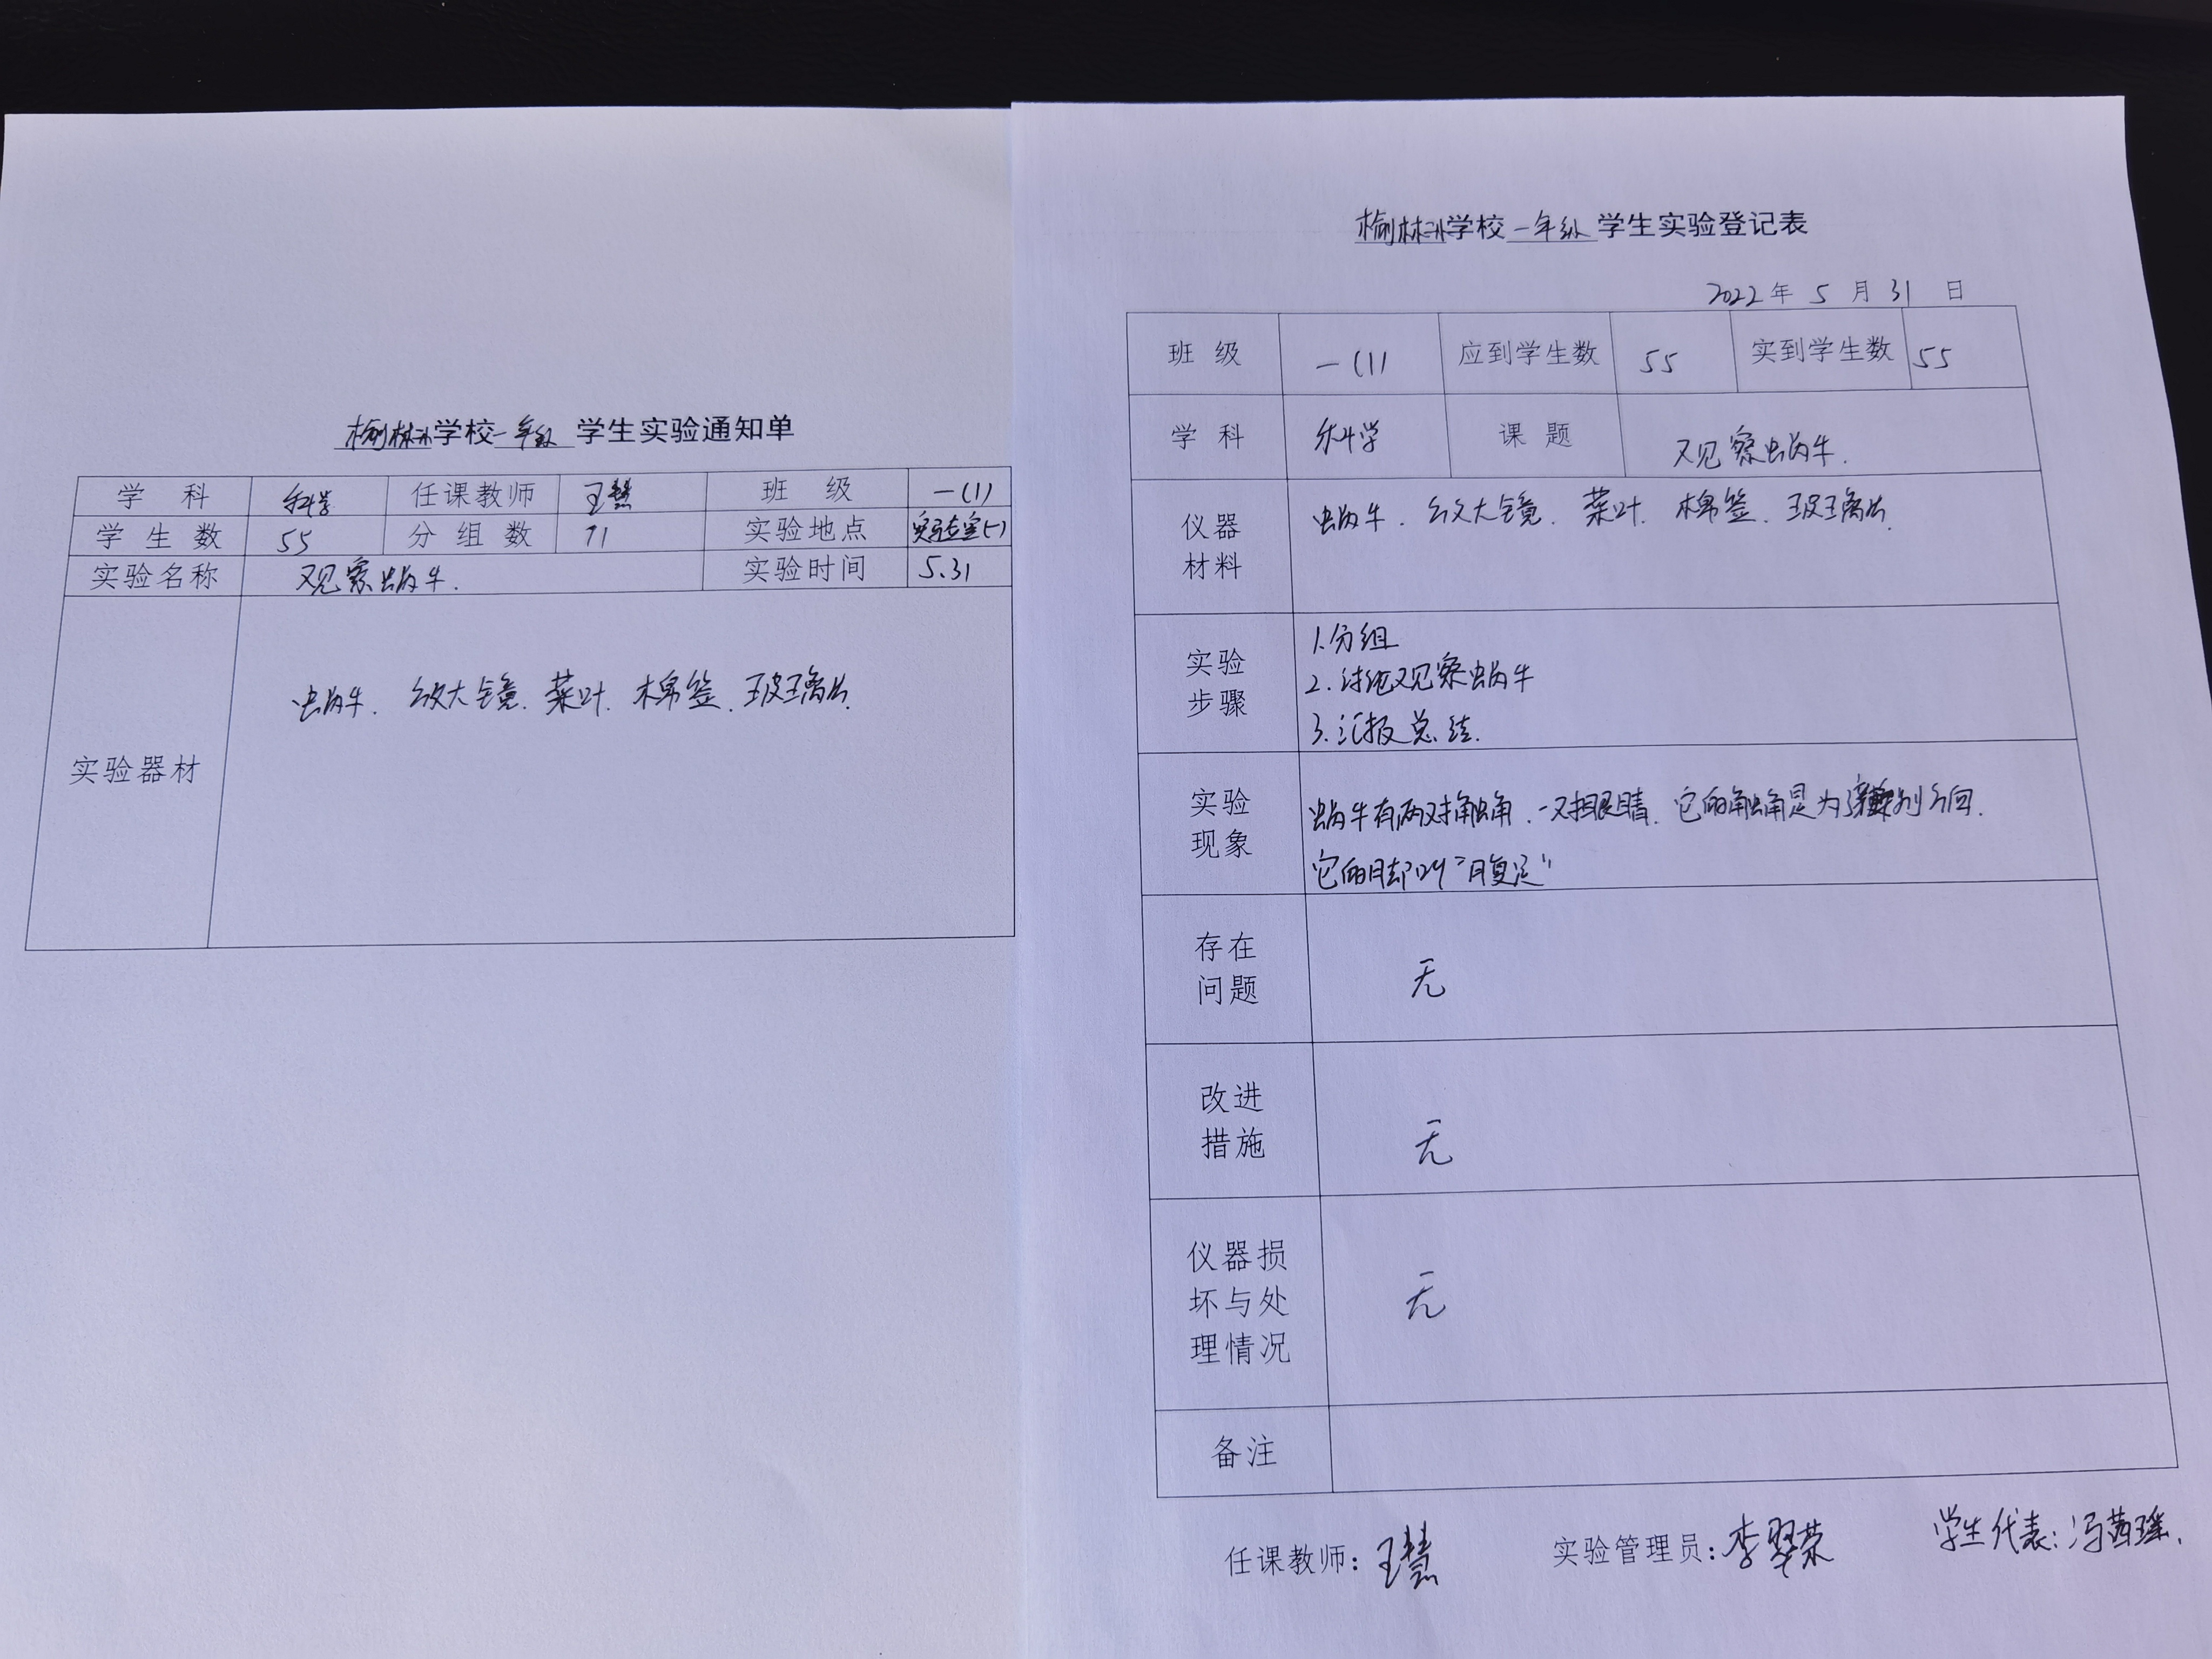 榆林小学校一年级 学生实验通知单
学 科 科学 任课教师 王慧 班 级 一(1)
学 生 数 55 分 组 数 11 实验地点 实验室(一)
实验名称 观察蜗牛. 实验时间 5.31
实验器材 蜗牛. 放大镜. 菜叶. 棉签. 玻璃片.
榆林小学校 一年级 学生实验登记表
2022 年 5 月 31 日
班 级 一(1) 应到学生数 55 实到学生数 55
学 科 科学 课 题 观察蜗牛.
仪器
材料
蜗牛. 放大镜. 菜叶. 棉签. 玻璃片.
实验
步骤
1.分组
2.讨论观察蜗牛
3.汇报总结.
实验
现象
蜗牛有两对触角.一对眼睛.它的触角是为了辨别方向.
它的脚叫“腹足”
存在
问题
无
改进
措施
无
仪器损
坏与处
理情况
无
备注
任课教师：王慧 实验管理员：李翠荣 学生代表：冯茜瑶.